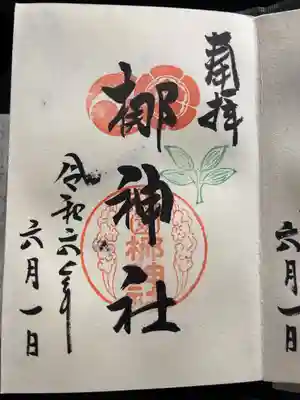 奉拝
梛神社
梛神社
令和六年
六月一日
六月一日